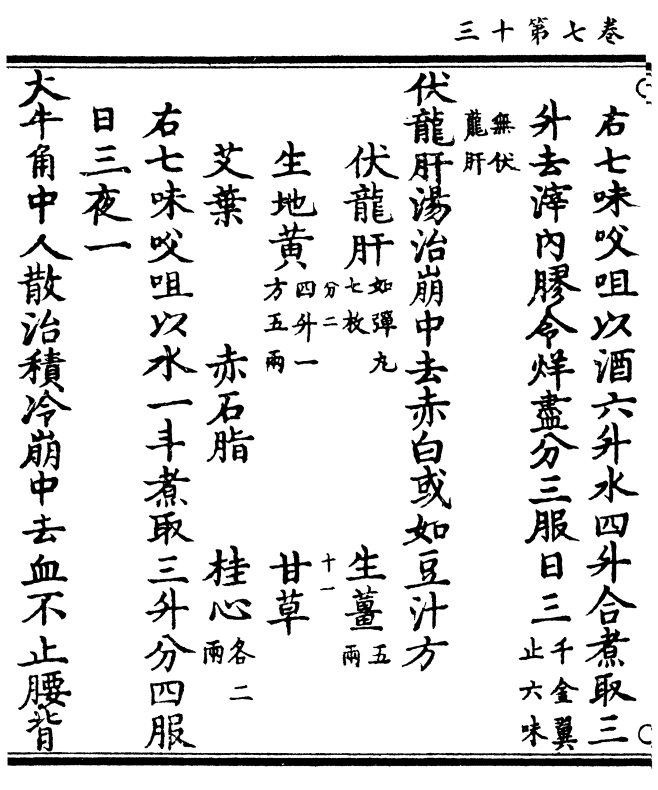 三十第七卷
右七味㕮咀以酒六升水四升合煮取三
升去滓內膠令烊盡分三服日三千金翼止六味
無伏龍肝
伏龍肝湯治崩中去赤白或如豆汁方
伏龍肝如彈丸七枚 生薑五兩
生地黃四升一方五兩 甘草
分二
十一
艾葉 赤石脂 桂心各二兩
右七味㕮咀以水一斗煮取三升分四服
日三夜一
大牛角中人散治積冷崩中去血不止腰背